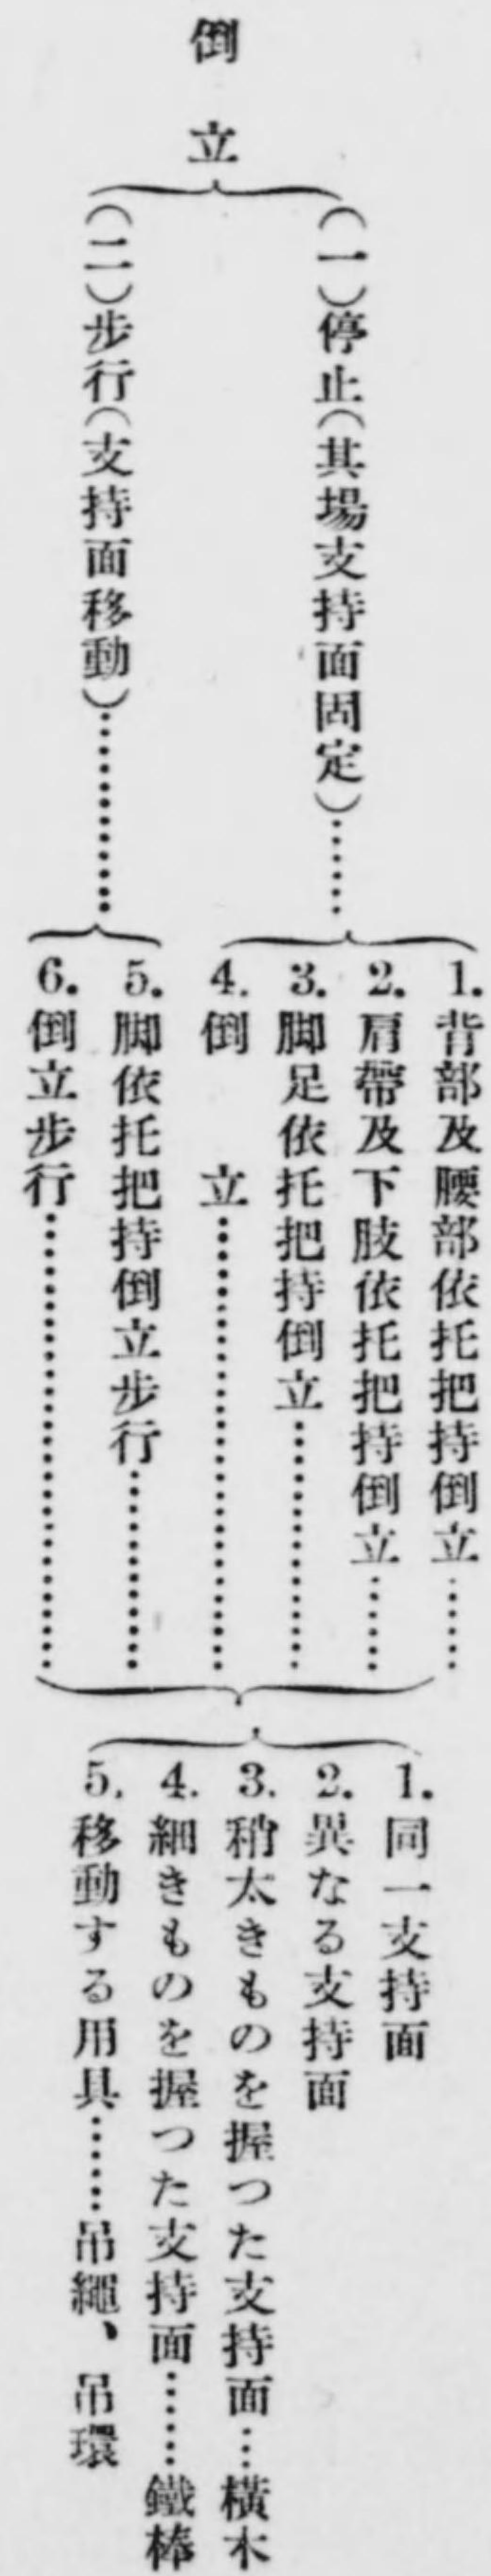 倒立
(一)停止(其場支持面固定)……
1. 背部及腰部依托把持倒立……
2. 肩帶及下肢依托把持倒立……
3. 脚足依托把持倒立……
4. 倒立……
(二)步行(支持面移動)……
5. 脚依托把持倒立步行……
6. 倒立步行……
1. 同一支持面
2. 異なる支持面
3. 稍太きものを握つた支持面…橫木
4. 細きものを握つた支持面……鐵棒
5. 移動する用具……吊繩、吊環